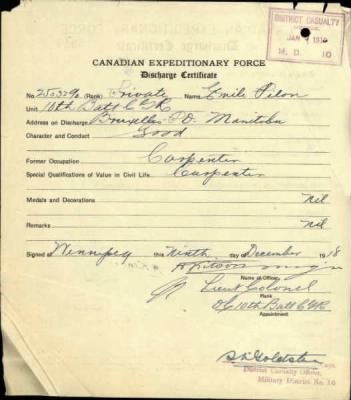 DISTRICT CASUALTY
JAN
M. D. 10
CANADIAN EXPEDITIONARY FORCE
Discharge Certificate
No. (Rank) Private Name Emile Pilon
Unit 10th Batt C.G.R.
Address on Discharge Bruxelles P.O. Manitoba
Character and Conduct Good
Former Occupation Carpenter
Special Qualifications of Value in Civil Life. Carpenter
Medals and Decorations Nil
Remarks Nil
Signed at Winnipeg this Ninth day of December 1918
Name of Officer
Lieut Colonel
Rank
O/C 10th Batt C.G.R.
Appointment
Goldstein Capt.
District Casualty Officer,
Military District No. 10